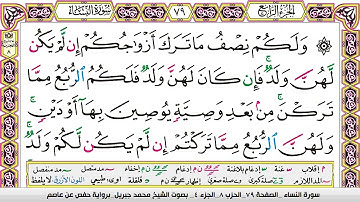 الجزء الرابع
٧٩
سورة النساء
وَلَكُمْ نِصْفُ مَا تَرَكَ أَزْوَاجُكُمْ إِن لَّمْ يَكُن
لَّهُنَّ وَلَدٌ فَإِن كَانَ لَهُنَّ وَلَدٌ فَلَكُمُ الرُّبُعُ مِمَّا
تَرَكْنَ مِن بَعْدِ وَصِيَّةٍ يُوصِينَ بِهَا أَوْ دَيْنٍ
وَلَهُنَّ الرُّبُعُ مِمَّا تَرَكْتُمْ إِن لَّمْ يَكُن لَّكُمْ وَلَدٌ
سورة النساء . الصفحة ٧٩ الحزب ٨ الجزء ٤ . بصوت الشيخ محمد جبريل برواية حفص عن عاصم